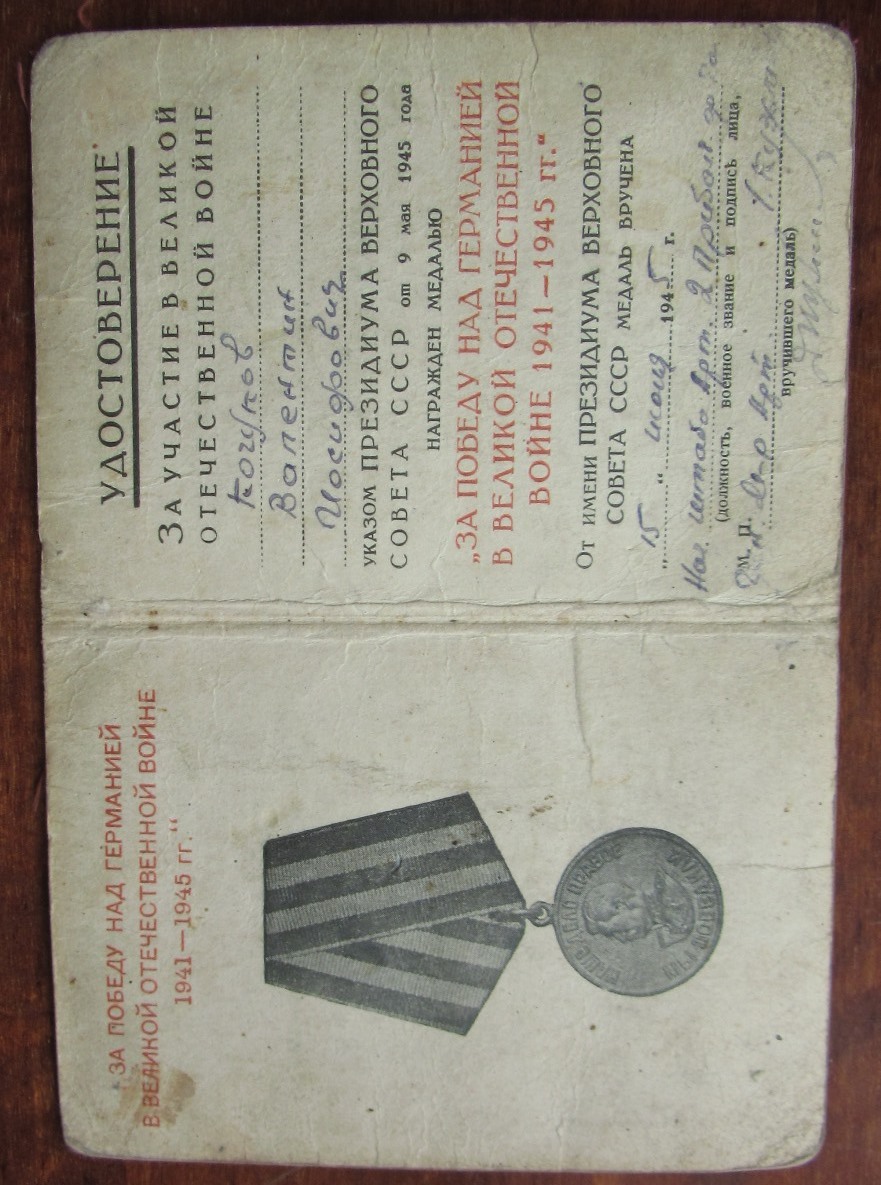 „ЗА ПОБЕДУ НАД ГЕРМАНИЕЙ
В ВЕЛИКОЙ ОТЕЧЕСТВЕННОЙ ВОЙНЕ
1941—1945 гг.“
НАШЕ ДЕЛО ПРАВОЕ
МЫ ПОБЕДИЛИ
УДОСТОВЕРЕНИЕ
ЗА УЧАСТИЕ В ВЕЛИКОЙ
ОТЕЧЕСТВЕННОЙ ВОЙНЕ
Валентин
Иосифович
УКАЗОМ ПРЕЗИДИУМА ВЕРХОВНОГО
СОВЕТА СССР от 9 мая 1945 года
НАГРАЖДЕН МЕДАЛЬЮ
„ЗА ПОБЕДУ НАД ГЕРМАНИЕЙ
В ВЕЛИКОЙ ОТЕЧЕСТВЕННОЙ
ВОЙНЕ 1941—1945 гг.“
ОТ ИМЕНИ ПРЕЗИДИУМА ВЕРХОВНОГО
СОВЕТА СССР МЕДАЛЬ ВРУЧЕНА
„15“ июня 1945 г.
Нач. штаба Арт. 2 Прибал.
(должность, военное звание и подпись лица,
М. П.
вручившего медаль)